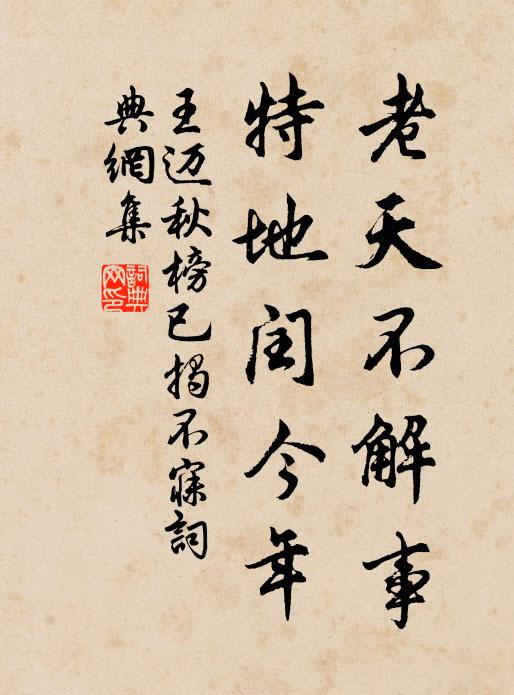 老天不解事
特地闰今年
王迈秋榜已揭不寐詞
典網集
詞典
网印